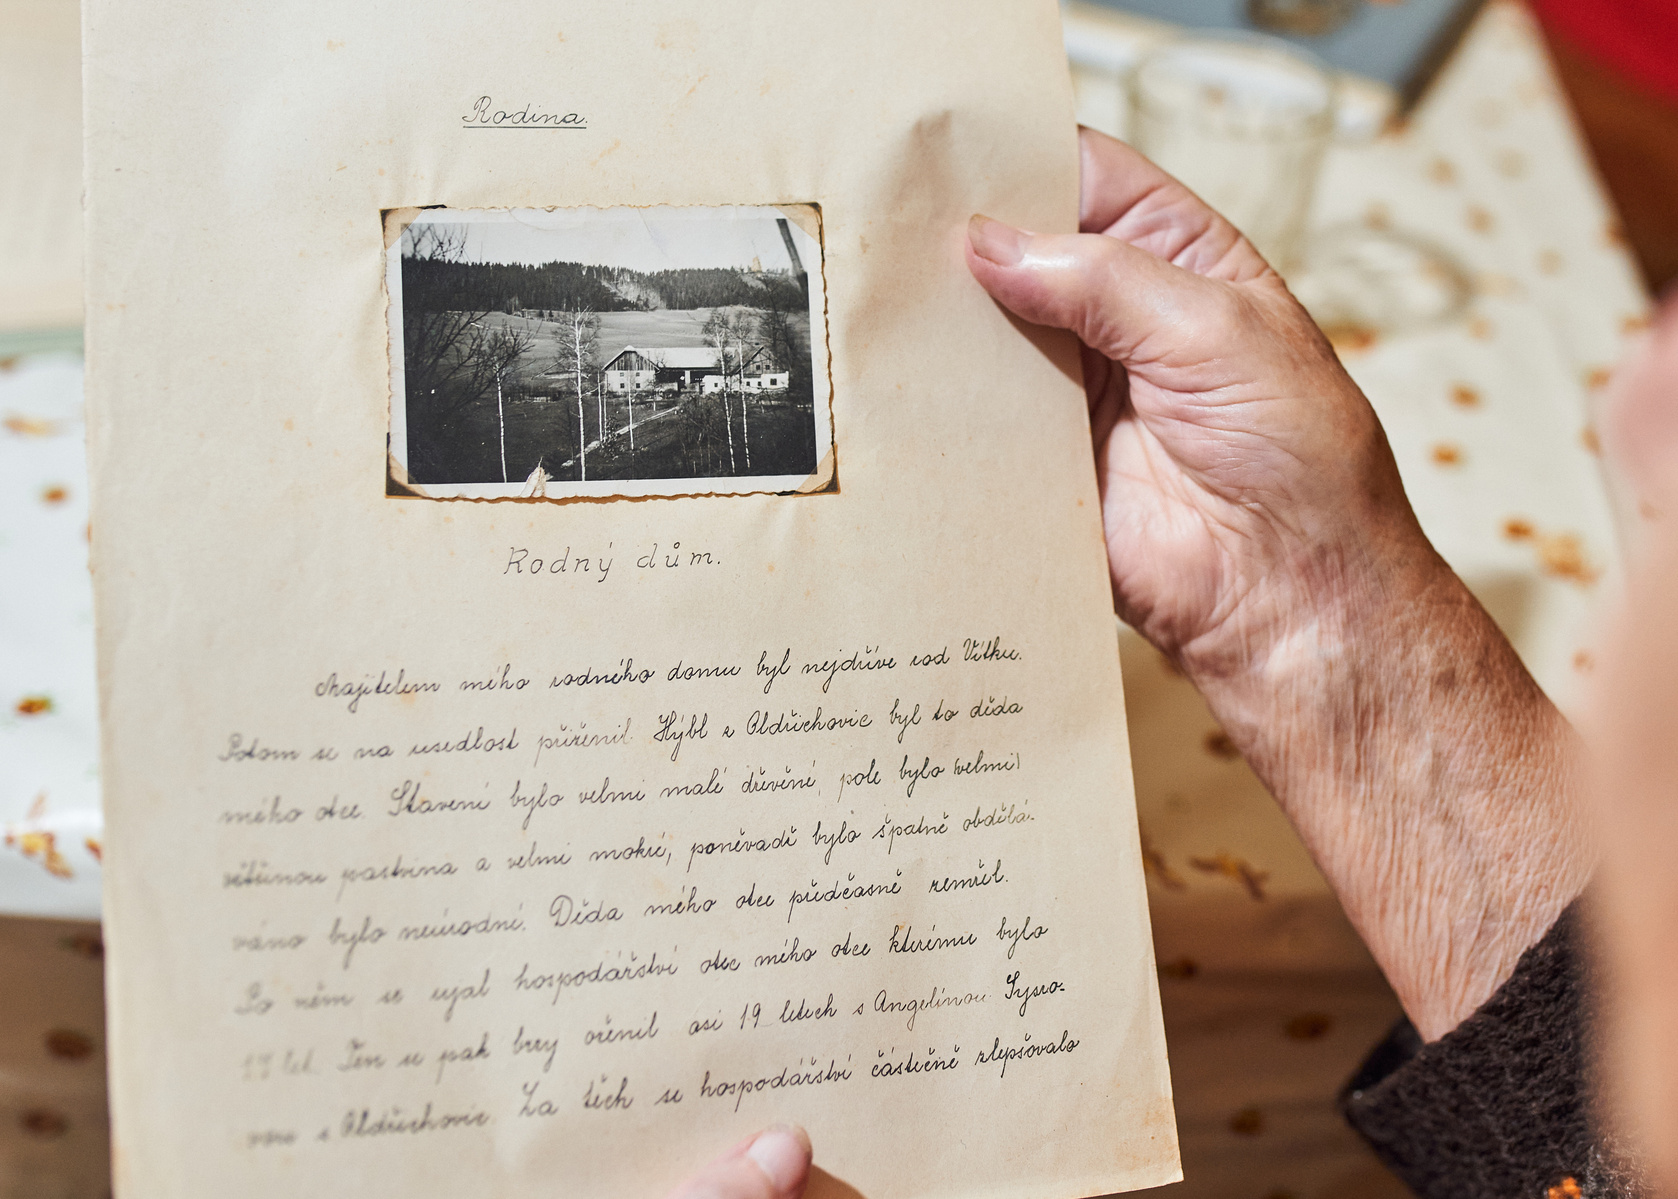 Rodina.
Rodný dům.
Majitelem mého rodného domu byl nejdříve rod Vítku.
Potom se na usedlost přiženil Hýbl z Oldřichovic byl to děda
mého otce. Stavení bylo velmi malé dřevěné, pole bylo (velmi)
většinou pastvina a velmi mokré, poněvadž bylo špatně obdělá-
váno bylo neúrodné. Děda mého otce předčasně zemřel.
Po něm se ujal hospodářství otec mého otce kterému bylo
17 let. Ten se pak brzy oženil asi 19 letech s Angelínou Sysro-
vou z Oldřichovic. Za těch se hospodářství částečně zlepšovalo